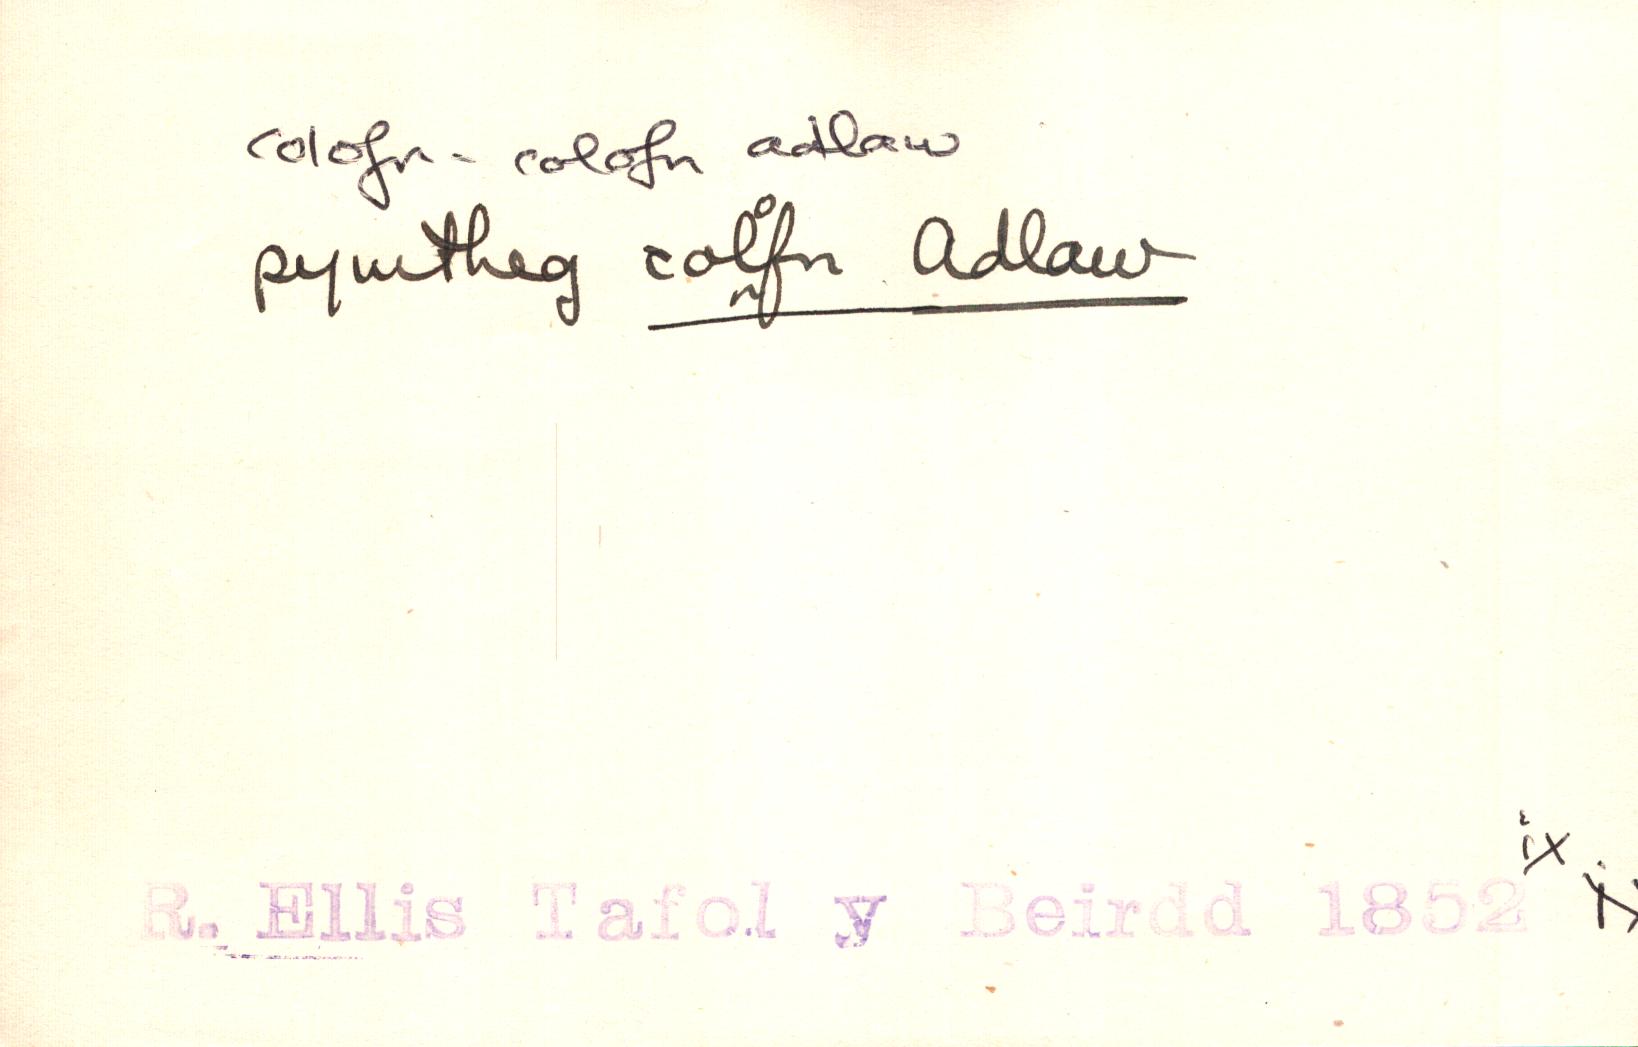 colofn - colofn adlaw
pymtheg colofn Adlaw
R. Ellis Tafol y Beirdd 1852 ix